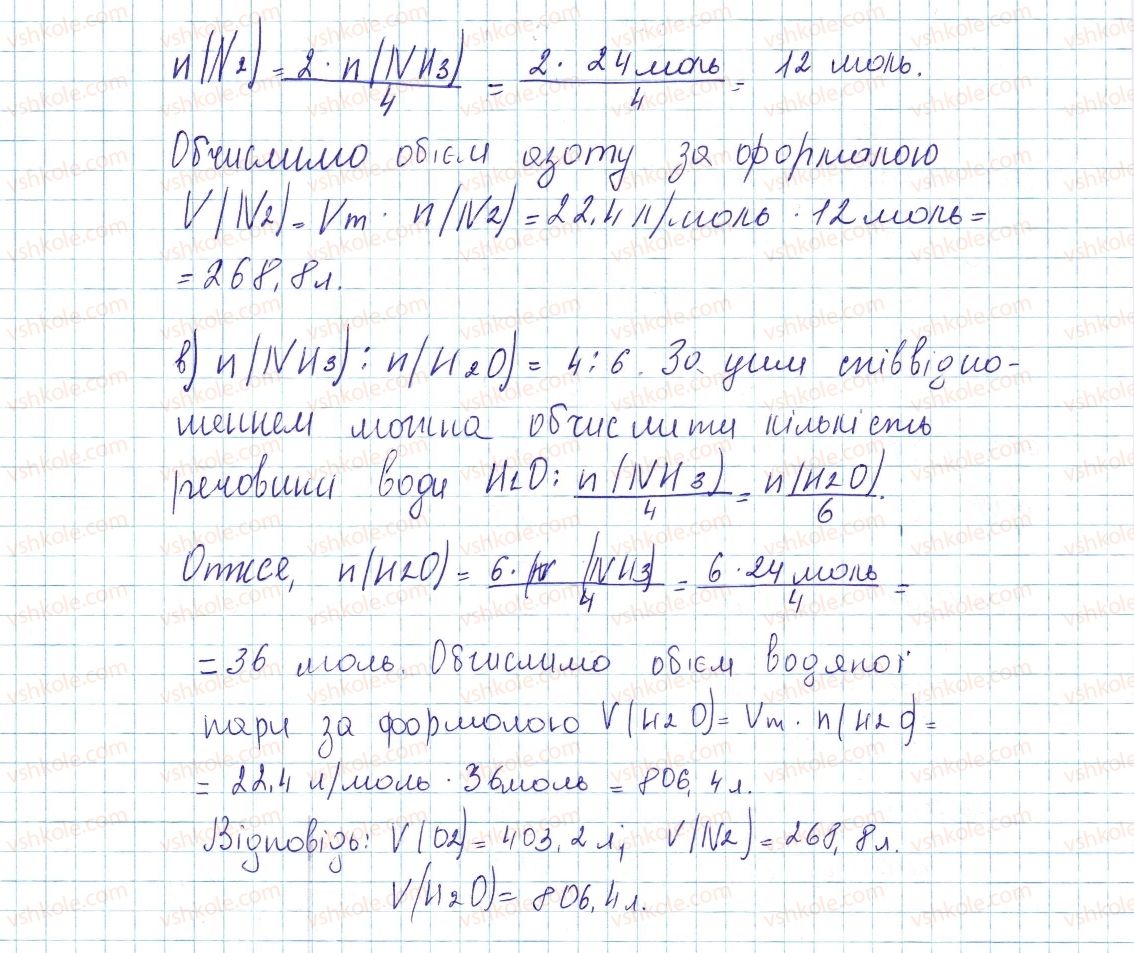 n(N2) = 2 · n(NH3) / 4 = 2 · 24 моль / 4 = 12 моль.
Обчислимо обієм азоту за формолою
V(N2) = Vm · n(N2) = 22,4 л/моль · 12 моль =
= 268,8 л.
в) n(NH3) : n(H2O) = 4 : 6. За цим співвідно-
шенням можна обчислити кількість
речовини води H2O: n(NH3) / 4 = n(H2O) / 6.
Отже, n(H2O) = 6 · n (NH3) / 4 = 6 · 24 моль / 4 =
= 36 моль. Обчислимо обієм водяної
пари за формолою V(H2O) = Vm · n(H2O) =
= 22,4 л/моль · 36 моль = 806,4 л.
Відповідь: V(O2) = 403,2 л; V(N2) = 268,8 л.
V(H2O) = 806,4 л.
vshkole.com